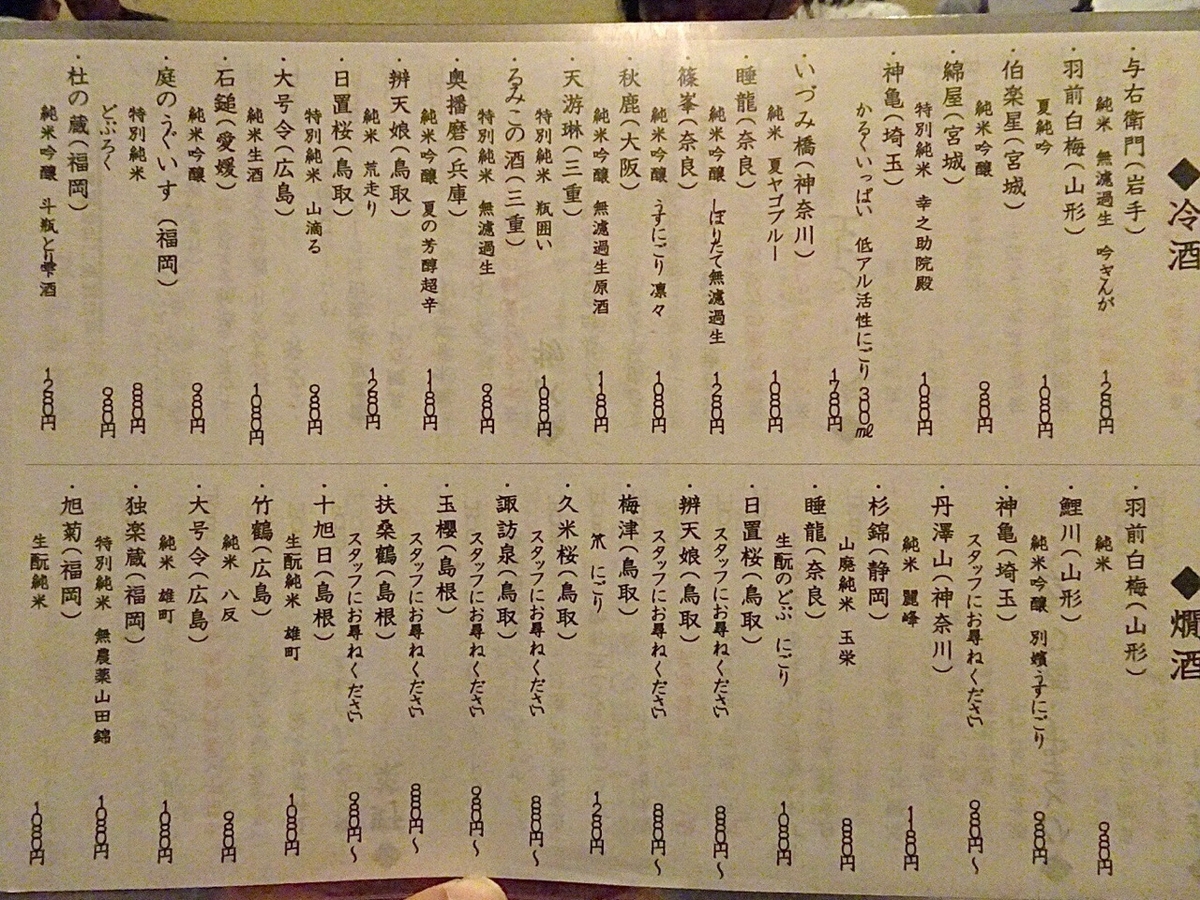 ◆冷酒
・与右衛門（岩手）
純米 無濾過生 吟ぎんが 1280円
・羽前白梅（山形）
夏純吟 1080円
・伯楽星（宮城）
純米吟醸 980円
・綿屋（宮城）
特別純米 幸之助院殿 1080円
・神亀（埼玉）
かるくいっぱい 低アル活性にごり 300㎖ 1780円
・いづみ橋（神奈川）
純米 夏ヤゴブルー 1080円
・睡龍（奈良）
純米吟醸 しぼりたて無濾過生 1280円
・篠峯（奈良）
純米吟醸 うすにごり 凛々 1080円
・秋鹿（大阪）
純米吟醸 無濾過生原酒 1180円
・天游琳（三重）
特別純米 瓶囲い 1080円
・るみこの酒（三重）
特別純米 無濾過生 980円
・奥播磨（兵庫）
純米吟醸 夏の芳醇超辛 1180円
・辨天娘（鳥取）
純米 荒走り 1280円
・日置桜（鳥取）
特別純米 山滴る 980円
・大号令（広島）
純米生酒 1080円
・石鎚（愛媛）
純米吟醸 980円
・庭のうぐいす（福岡）
特別純米 880円
どぶろく 980円
・杜の蔵（福岡）
純米吟醸 斗瓶とり雫酒 1280円
◆燗酒
・羽前白梅（山形）
純米 980円
・鯉川（山形）
純米吟醸 別嬪うすにごり 980円
・神亀（埼玉）
スタッフにお尋ねください 980円～
・丹澤山（神奈川）
純米 麗峰 1180円
・杉錦（静岡）
山廃純米 玉栄 880円
・睡龍（奈良）
生酛のどぶ にごり 1080円
・日置桜（鳥取）
スタッフにお尋ねください 880円～
・辨天娘（鳥取）
スタッフにお尋ねください 880円～
・梅津（鳥取）
笊 にごり 1280円
・久米桜（鳥取）
スタッフにお尋ねください 880円～
・諏訪泉（鳥取）
スタッフにお尋ねください 980円～
・玉櫻（島根）
スタッフにお尋ねください 880円～
・扶桑鶴（島根）
スタッフにお尋ねください 980円～
・十旭日（島根）
生酛純米 雄町 1080円
・竹鶴（広島）
純米 八反 980円
・大号令（広島）
純米 雄町 1080円
・独楽蔵（福岡）
特別純米 無農薬山田錦 1080円
・旭菊（福岡）
生酛純米 1080円